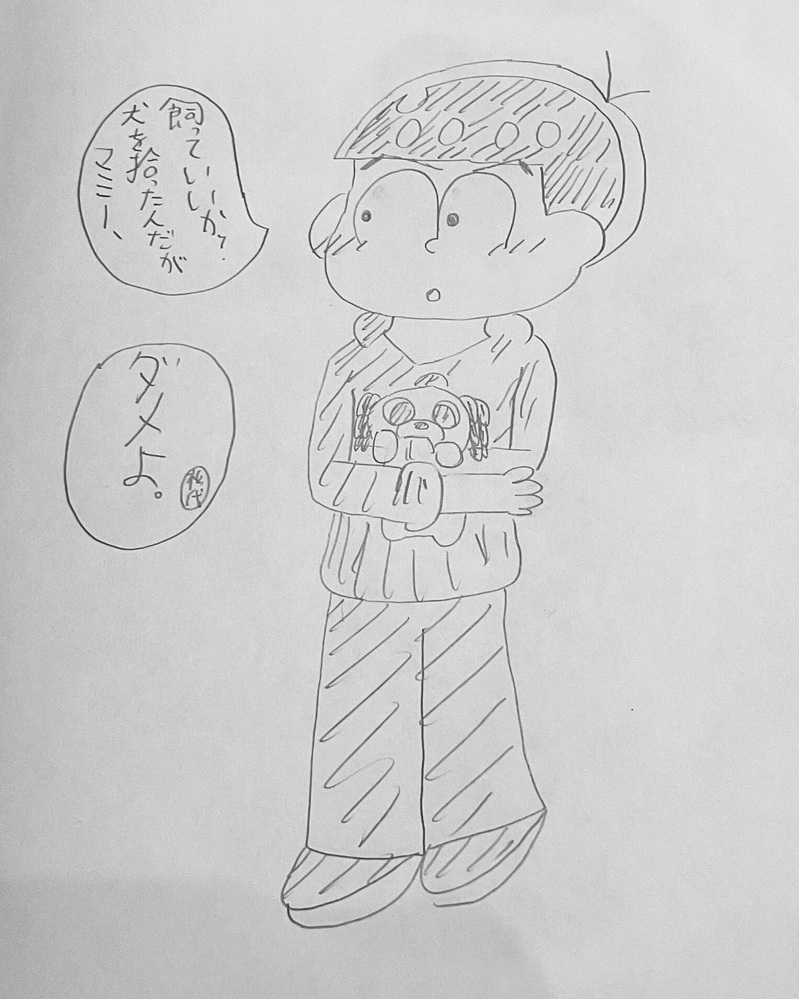 マミー、
犬を拾ったんだが
飼っていいか?
ダメよ。
松代